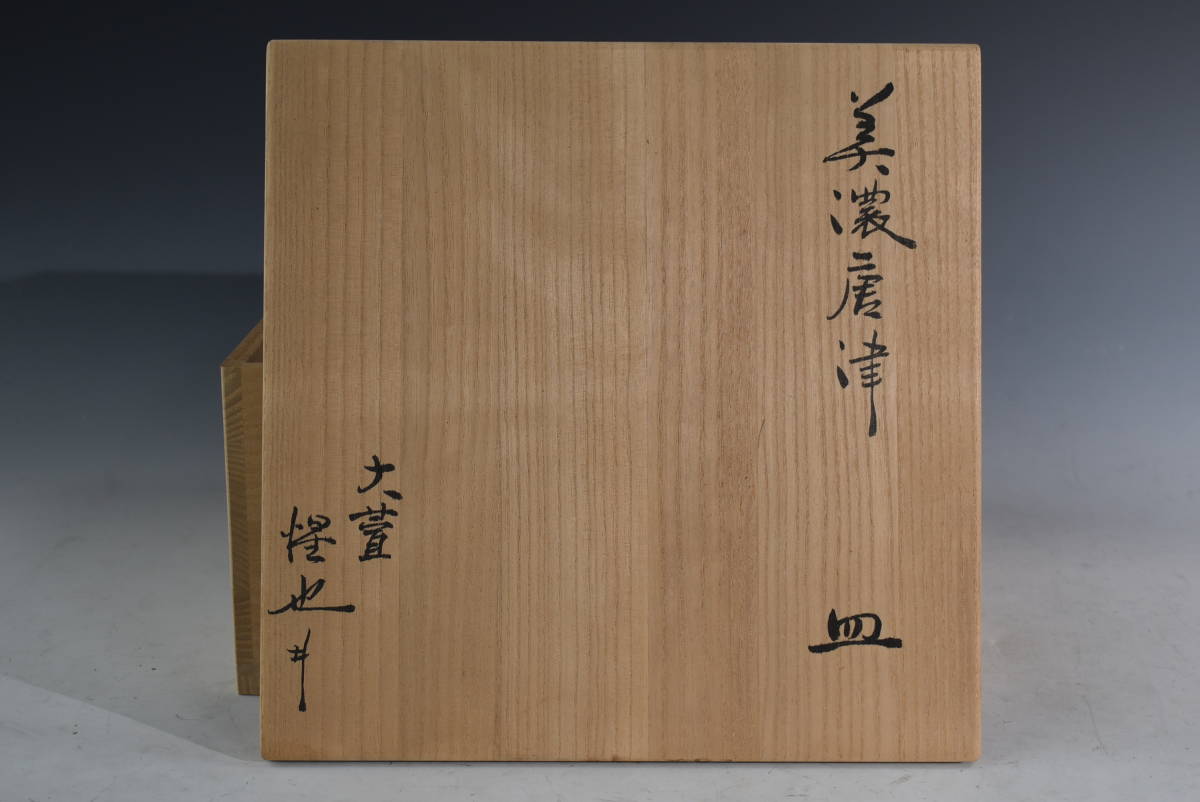 美濃唐津 皿
大萱
惺也